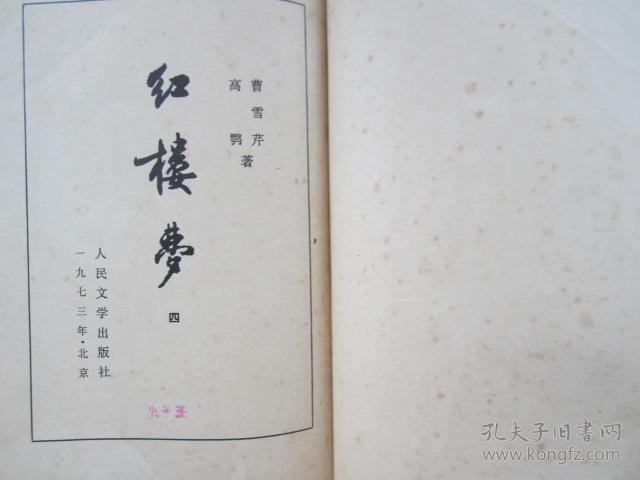 曹雪芹
高鹗 著
红楼梦
四
人民文学出版社
一九七三年·北京
孔夫子旧书网
www.kongfz.com